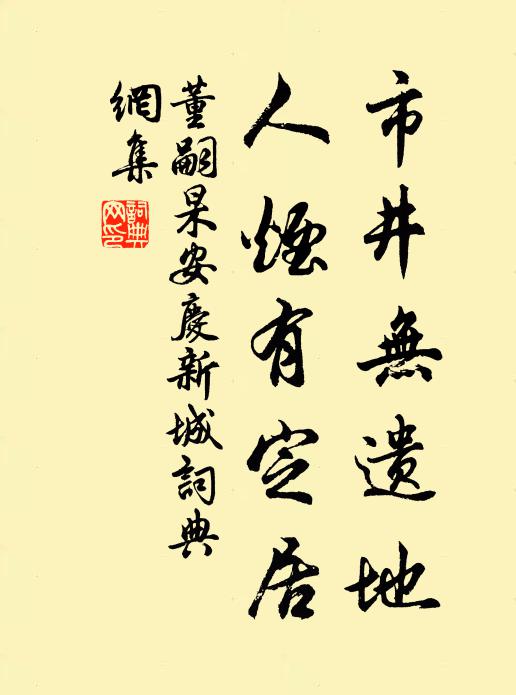 市井無遺地
人煙有定居
董嗣杲安慶新城詞典
網集
詞典
网印